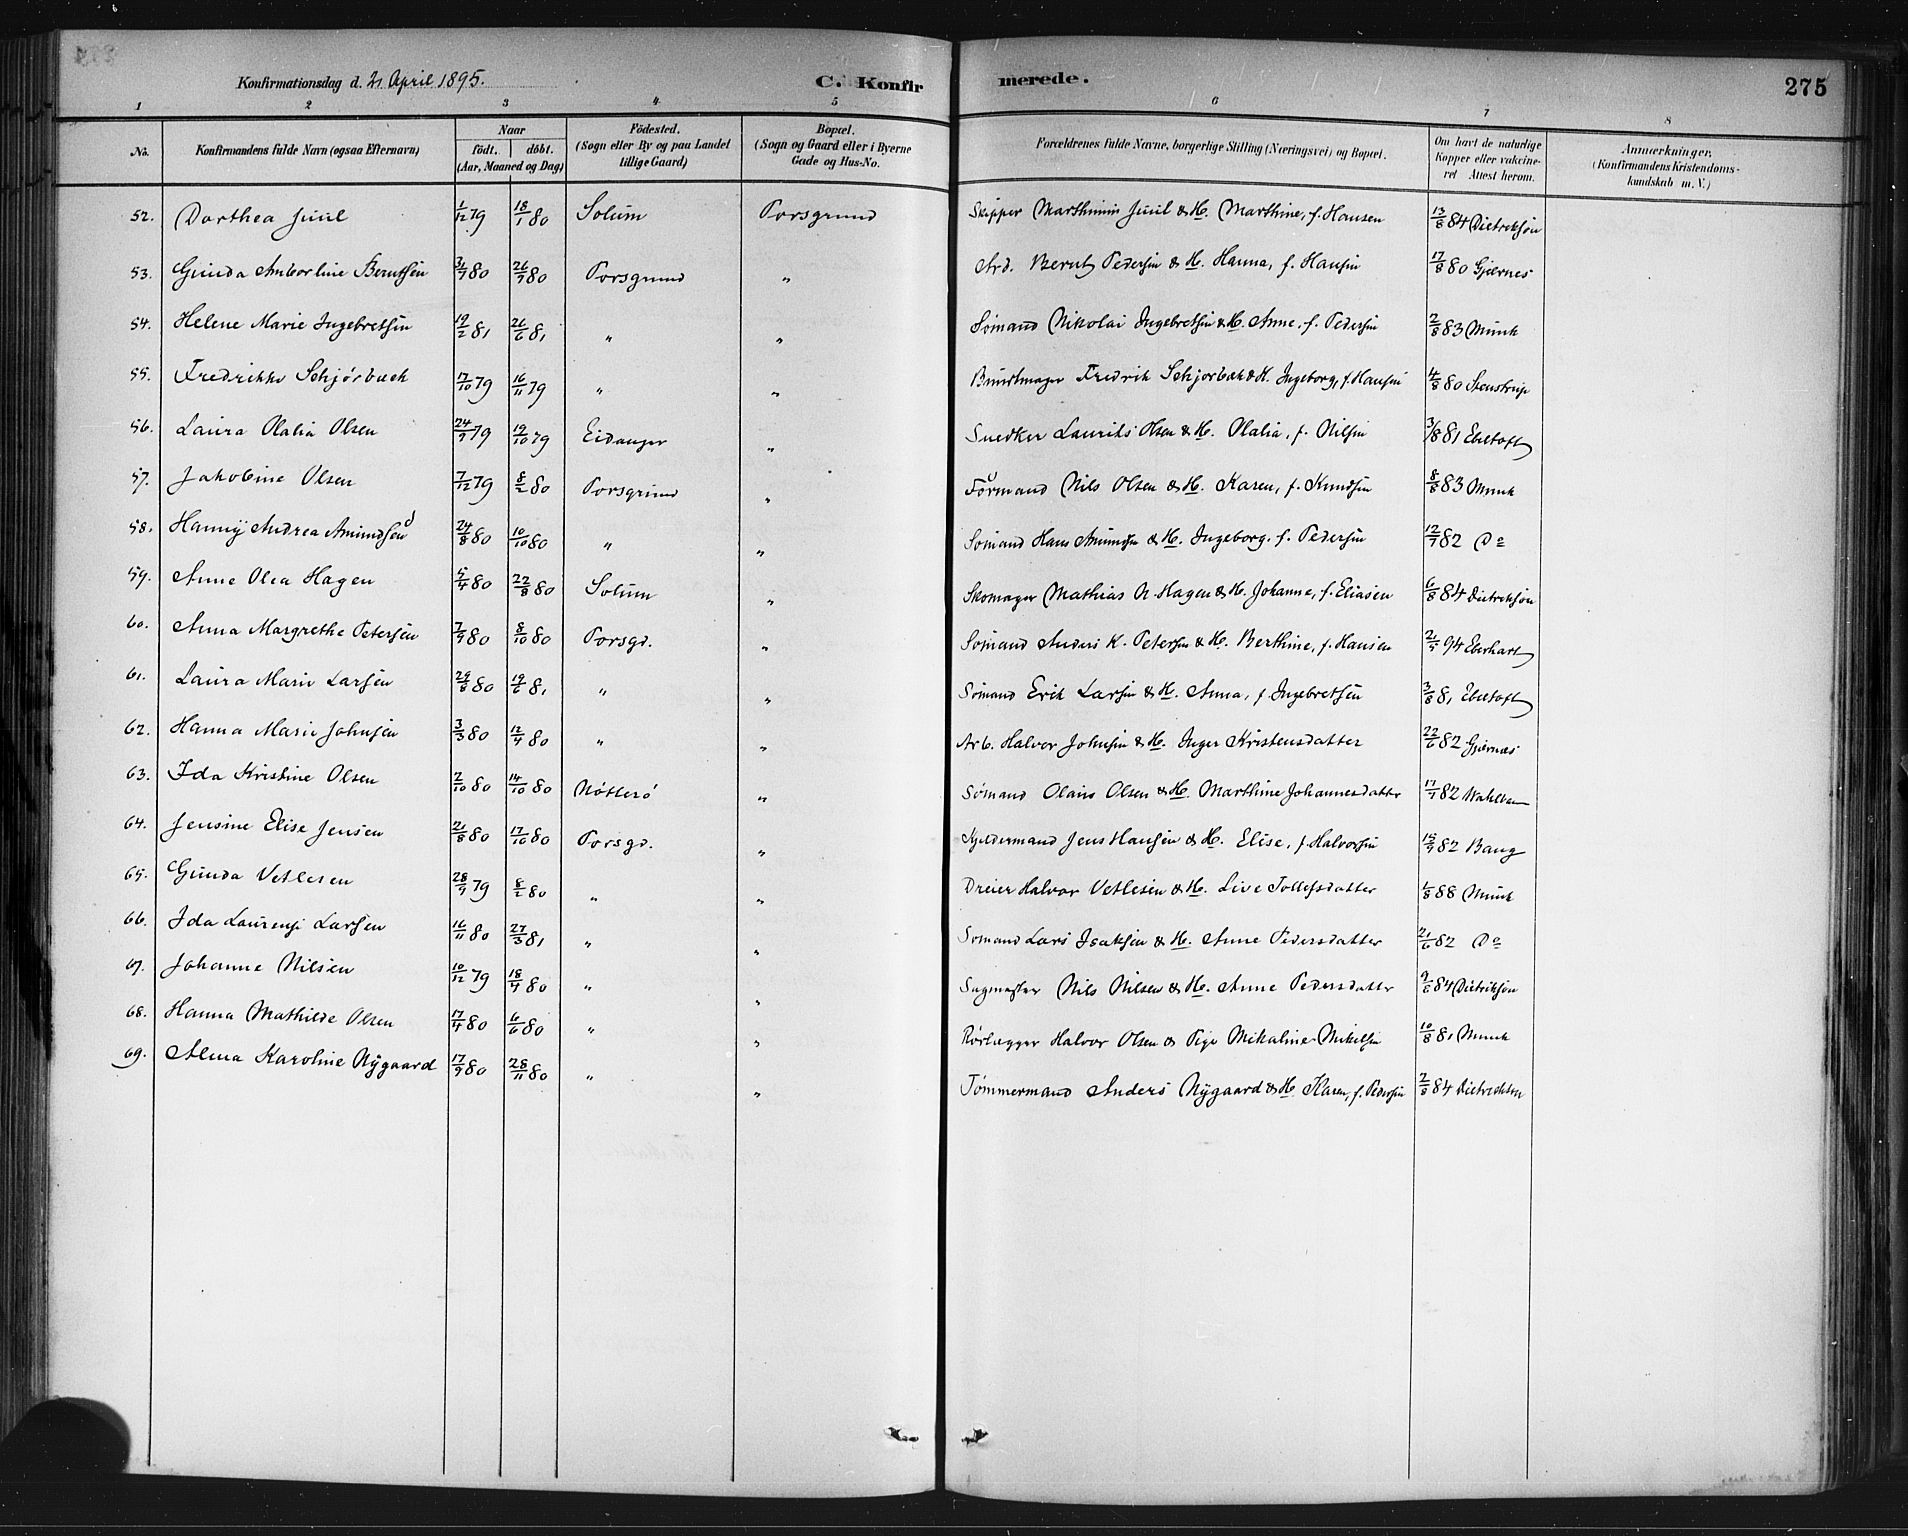 Konfirmationsdag d. 21 April 1895. C. Konfirmerede. 275
1 2 3 4 5 6 7 8
No. Konfirmandens fulde Navn (ogsaa Efternavn) Naar födt. döbt. (Aar, Maaned og Dag) Födested. (Sogn eller By og paa Landet tillige Gaard) Bopæl. (Sogn og Gaard eller i Byerne Gade og Hus-No. Forældrenes fulde Navne, borgerlige Stilling (Næringsvei) og Bopæl. Om havt de naturlige Kopper eller vakcineret Attest herom. Anmærkninger, (Konfirmandens Kristendomskundskab m. V.)
52. Dorthea Juul 1/12 79 18/1 80 Solum Porsgrund Skipper Marthinius Juul & H. Marthine, f. Hansen 13/8 84 Dietrikson
53. Gunda Amborline Berntsen 3/7 80 26/9 80 Porsgrund " Arb. Bernt Pedersen & H. Hanna, f. Hansen 17/8 80 Gjernes
54. Helene Marie Ingebretsen 19/2 81 26/6 81 " " Sömand Nikolai Ingebretsen & H. Anne, f. Pedersen 2/8 83 Munk
55. Fredrikke Schjörbeck 17/10 79 16/11 79 " " Buntmager Fredrik Schjorbak & H. Ingeborg, f. Hansen 4/8 80 Stenstrup
56. Laura Olalia Olsen 24/9 79 19/10 79 Eidanger " Snedker Laurits Olsen & H. Olalia, f. Nilsen 3/8 81 Ebeltoft
57. Jakobine Olsen 7/12 79 8/2 80 Porsgrund " Formand Nils Olsen & H. Karen, f. Knudsen 8/8 83 Munk
58. Hanny Andrea Amundsen 24/8 80 10/10 80 " " Sömand Hans Amundsen & H. Ingeborg. f. Pedersen 12/7 82 Do
59. Anne Olea Hagen 5/4 80 22/8 80 Solum " Skomager Mathias N. Hagen & H. Johanne, f. Eliasen 6/8 84 Dietrikson
60. Anna Margrethe Petersen 7/9 80 8/10 80 Porsgd. " Sömand Anders K. Petersen & H. Berthine, f. Hansen 2/5 94 Eberhart
61. Laura Marie Larsen 29/8 80 19/6 81 " " Sömand Erik Larsen & H. Anna, f Ingebretsen 3/8 81 Ebeltoft
62. Hanna Marie Johnsen 3/3 80 12/4 80 " " Arb. Halvor Johnsen & H. Inger Kristensdatter 22/6 82 Gjernes
63. Ida Kristine Olsen 2/10 80 14/10 80 Nötterö " Sömand Olaus Olsen & H. Marthine Johannesdatter 17/7 82
64. Jensine Elise Jensen 21/8 80 17/10 80 Porsgd. " Jens Hansen & H. Elise, f. Halvorsen 15/9 82 Bang
65. Gunda Vetlesen 28/9 79 8/2 80 " " Dreier Halvor Vetlesen & H. Live Tollefsdatter 1/8 88 Munk
66. Ida Laurense Larsen 16/11 80 27/3 81 " " Sömand Lars Isaksen & H. Anne Pedersdatter 21/6 82 Do
67. Johanne Nilsen 10/12 79 18/4 80 " " Sagmester Nils Nilsen & H. Anne Pedersdatter 9/6 84 Dietrikson
68. Hanna Mathilde Olsen 17/4 80 6/6 80 " " Rörlægger Halvor Olsen & Pige Mikaline Mikelsen 10/8 81 Munk
69. Alma Karoline Nygaard 17/9 80 28/11 80 " " Tömmermand Anders Nygaard & H. Karen, f. Pedersen 2/8 84 Dietrichson